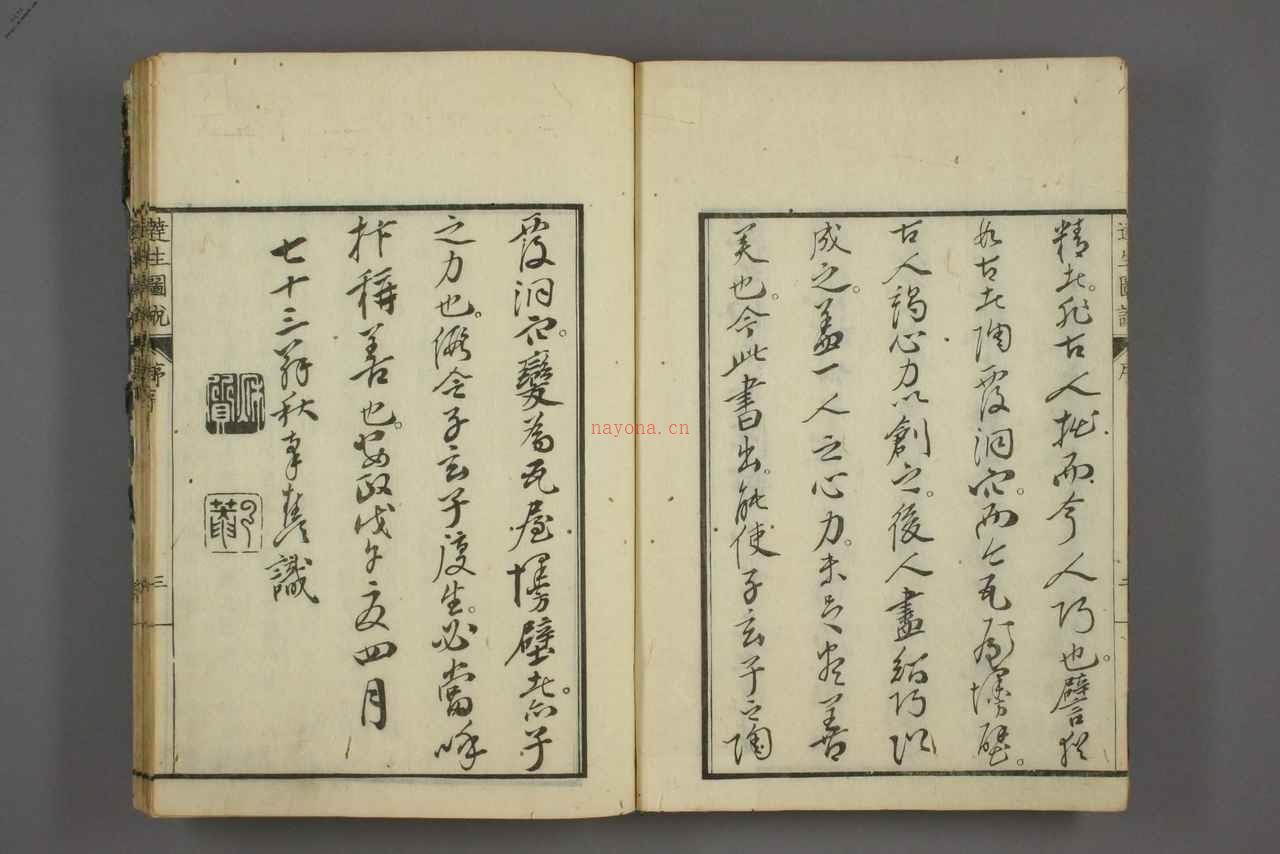 精者。非古人拙而今人巧也。譬猶
如古者陶覆洞穴。而今瓦屋墁壁。
古人竭心力以創之。後人盡結巧以
成之。蓋一人之心力。未盡善
美也。今此書出。能使子玄子之陶
覆洞穴。變為瓦屋墁壁者。亦子
之力也。儻令子玄子復生。必當呼
抃稱善也。安政戊午夏四月
七十三翁秋 識
達生圖說
序
三
達生圖說
序
二
nayona.cn